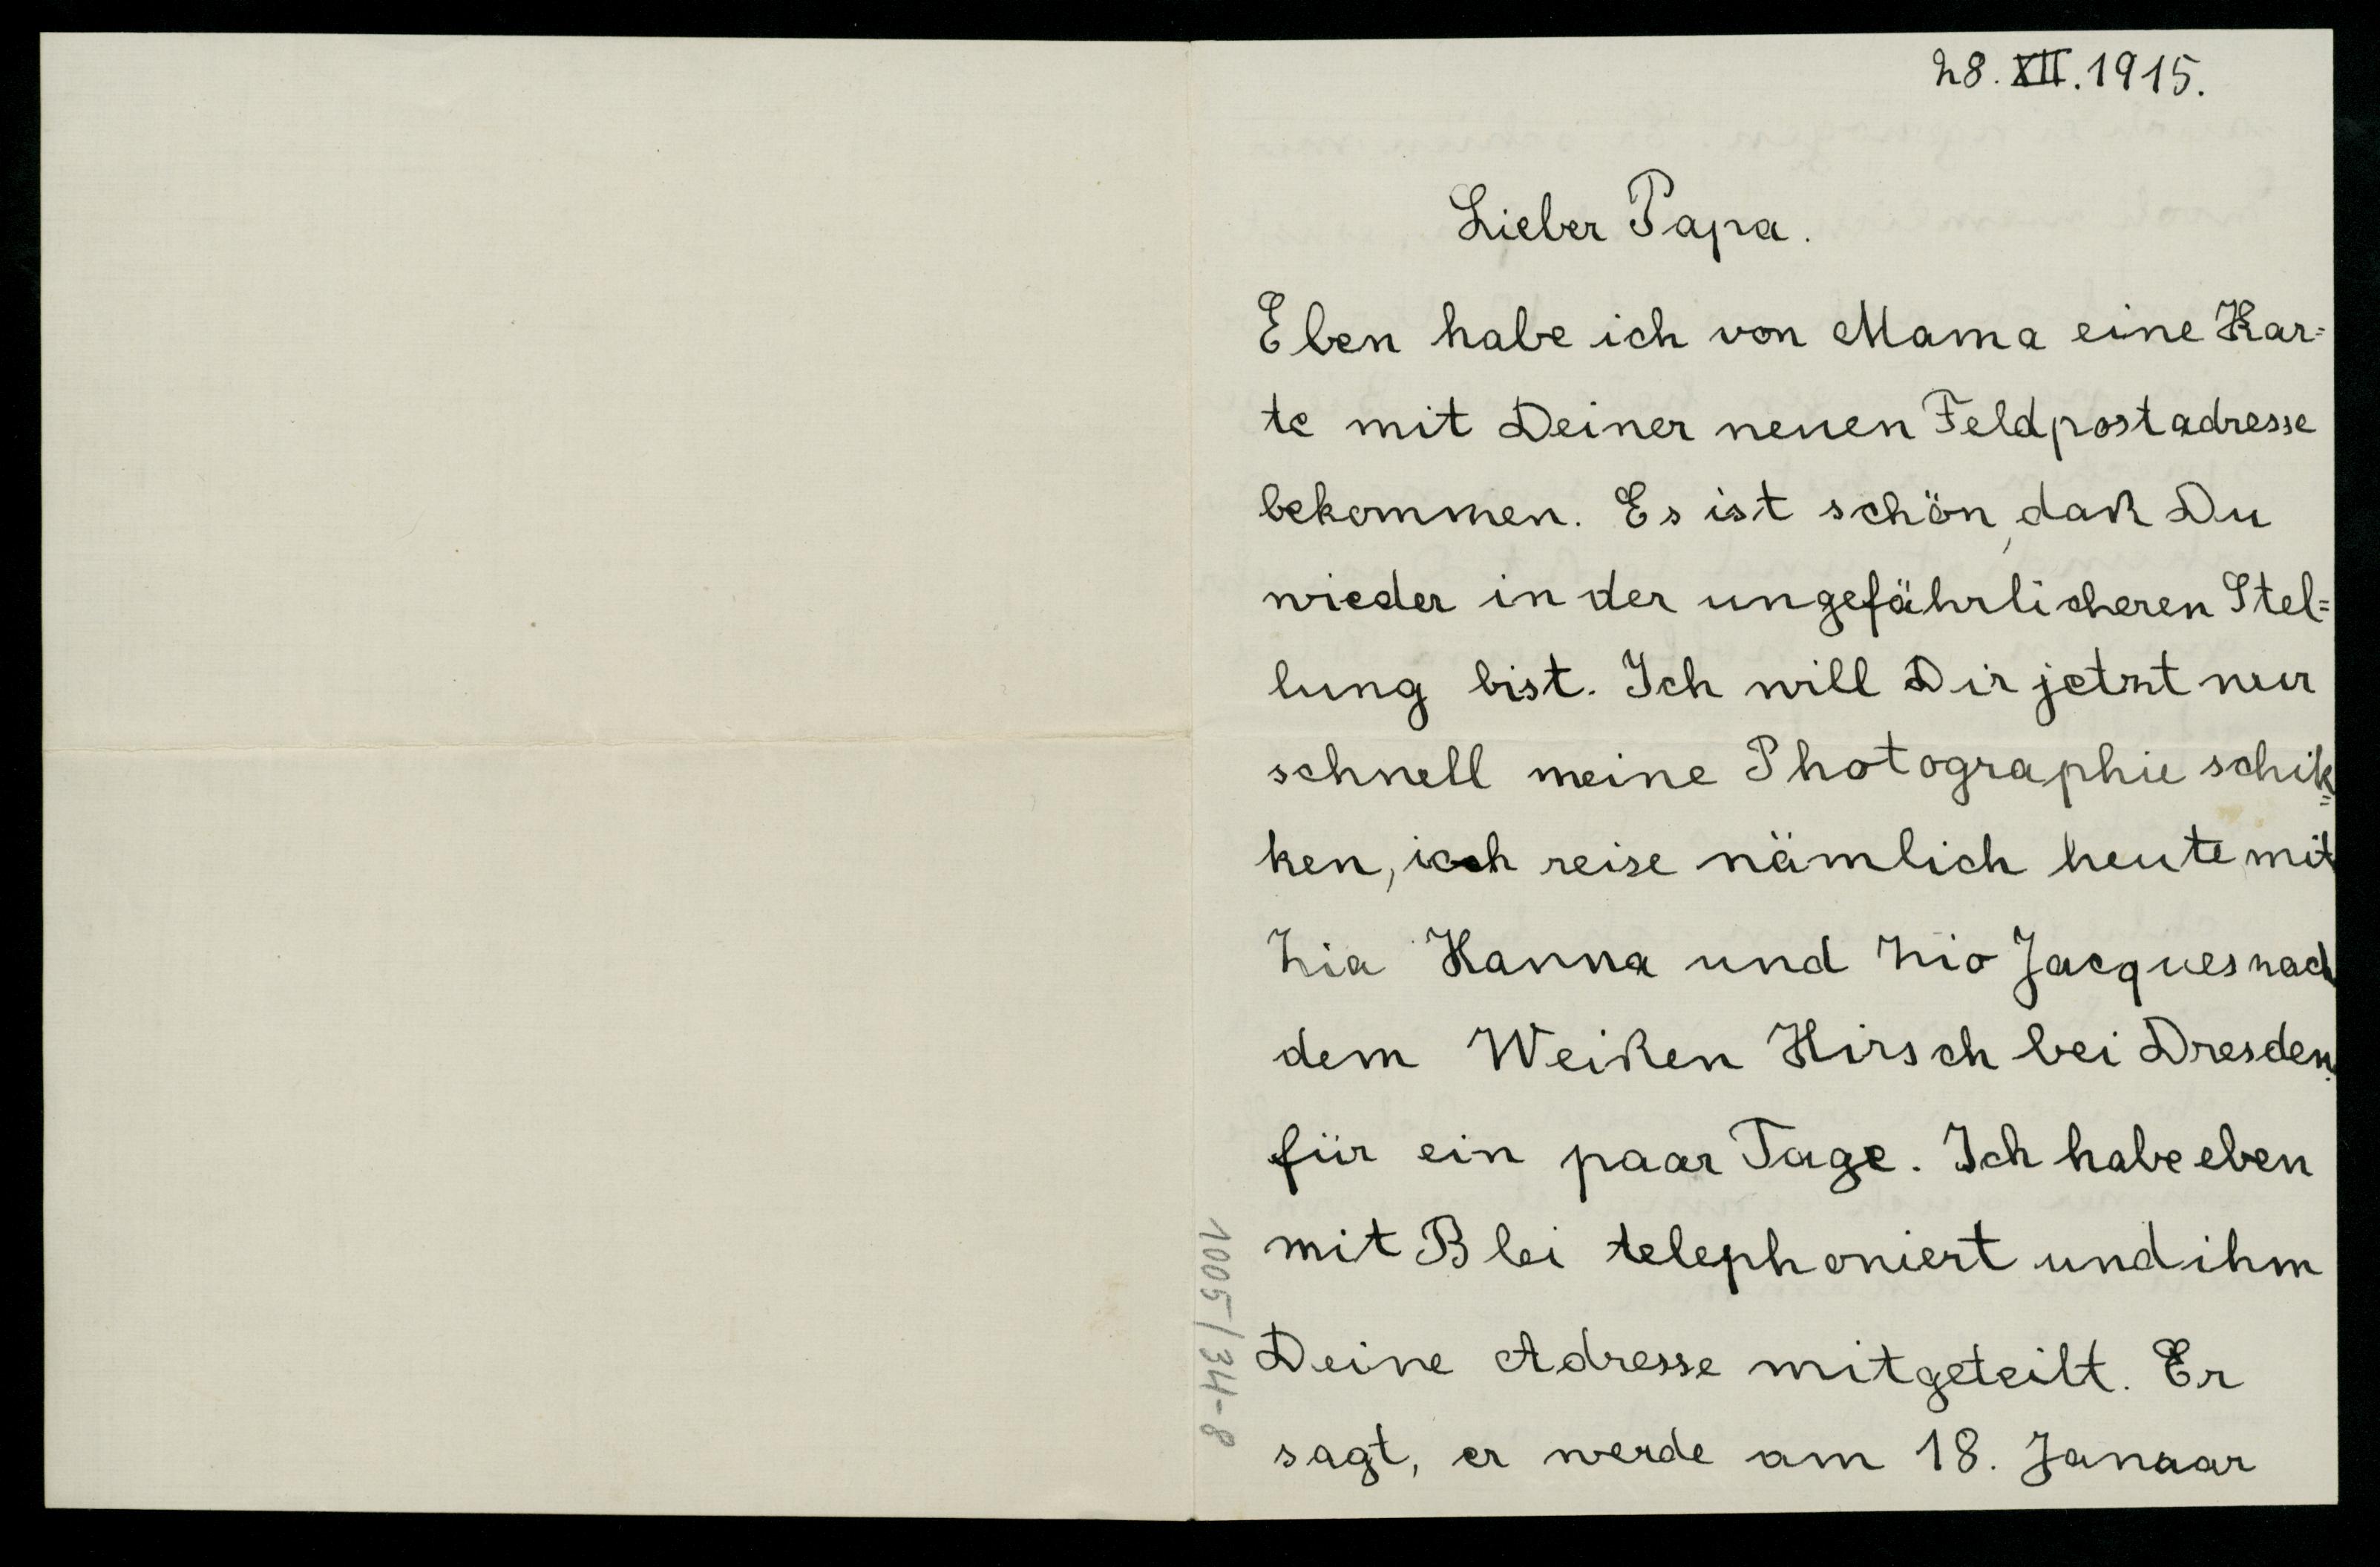 28. XII. 1915.
Lieber Papa.
Eben habe ich von Mama eine Kar=
te mit Deiner neuen Feldpostadresse
bekommen. Es ist schön, daß Du
wieder in der ungefährlicheren Stel=
lung bist. Ich will Dir jetzt nur
schnell meine Photographie schik=
ken, ich reise nämlich heute mit
Zia Hanna und Zio Jacques nach
dem Weißen Hirsch bei Dresden.
für ein paar Tage. Ich habe eben
mit Blei telephoniert und ihm
Deine Adresse mitgeteilt. Er
sagt, er werde am 18. Januar
1005/34-8